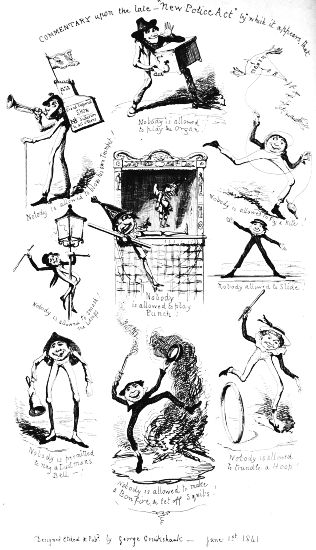 COMMENTARY upon the late "New Police Act" by which it appears that
Nobody is allowed
to play the Organ!
Nobody is allowed to blow his own Trumpet!
Nobody is allowed to fly a Kite
Nobody is allowed to
Lamps
Nobody
is allowed to play
Punch!
Nobody allowed to Slide
Nobody is permitted
to ring a Dustman's
Bell —
Nobody is allowed to make
a Bonfire & let off Squibs!
Nobody is allowed
to trundle a Hoop!
Designed Etched & Pubd by George Cruikshank — June 1st 1841